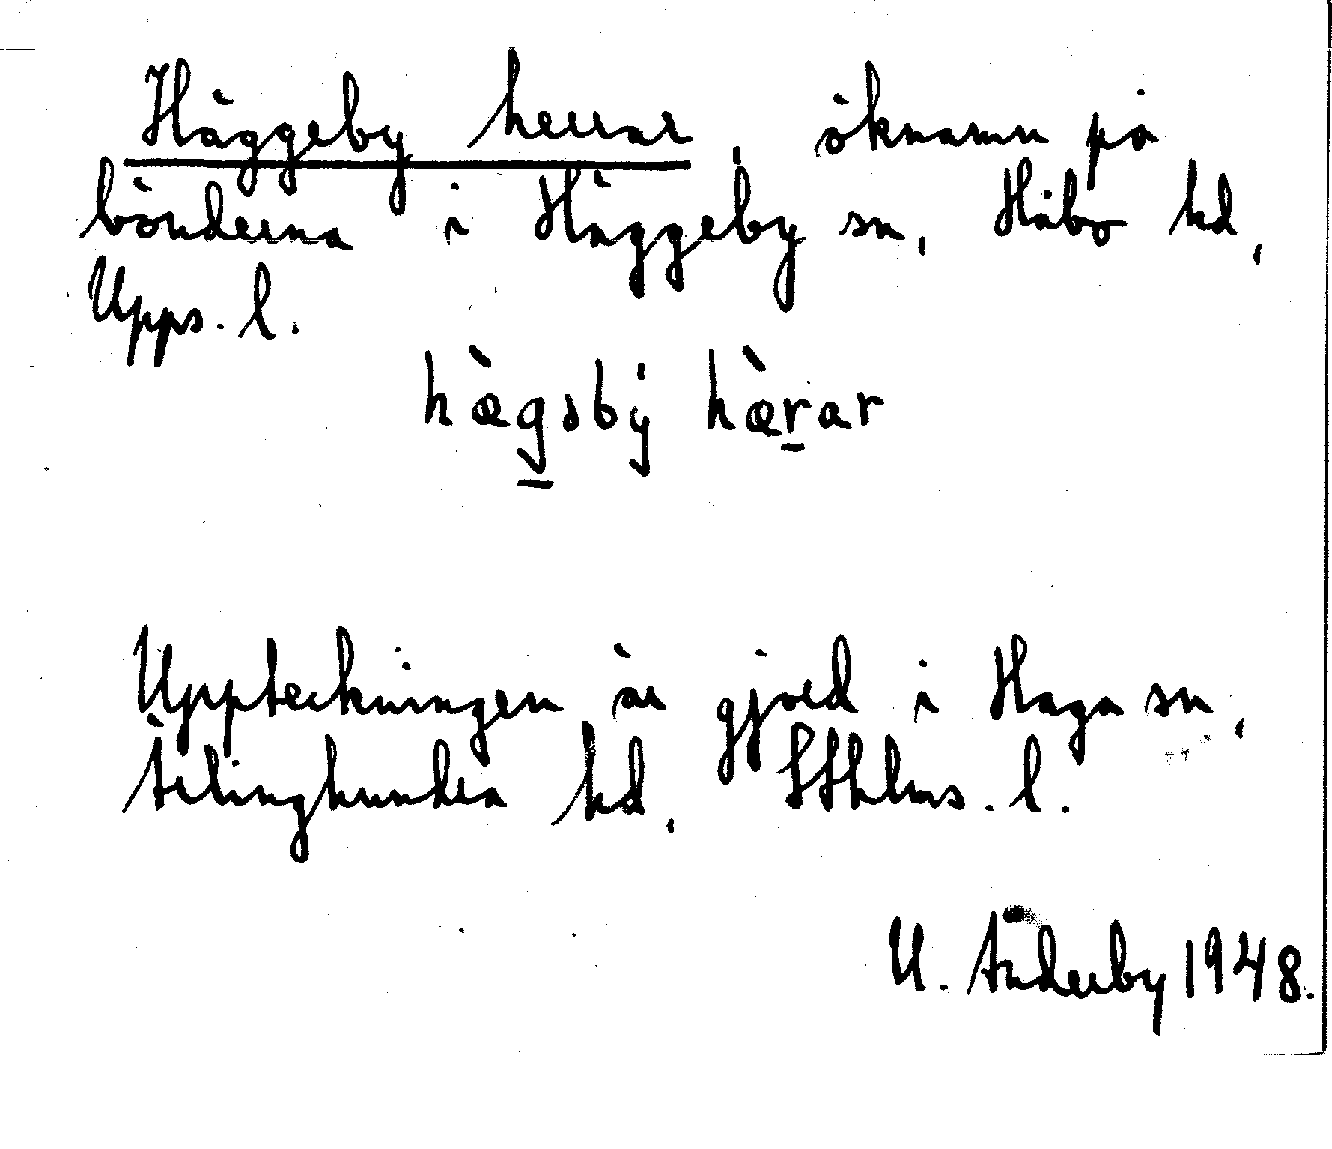 Häggeby herrar, öknamn på
bönderna i Häggeby sn, Håbo hd,
Upps. l.
hægsby hærar
Uppteckningen är gjord i Haga sn,
Ärlinghundra hd, Sthlms. l.
U. Änderby 1948.